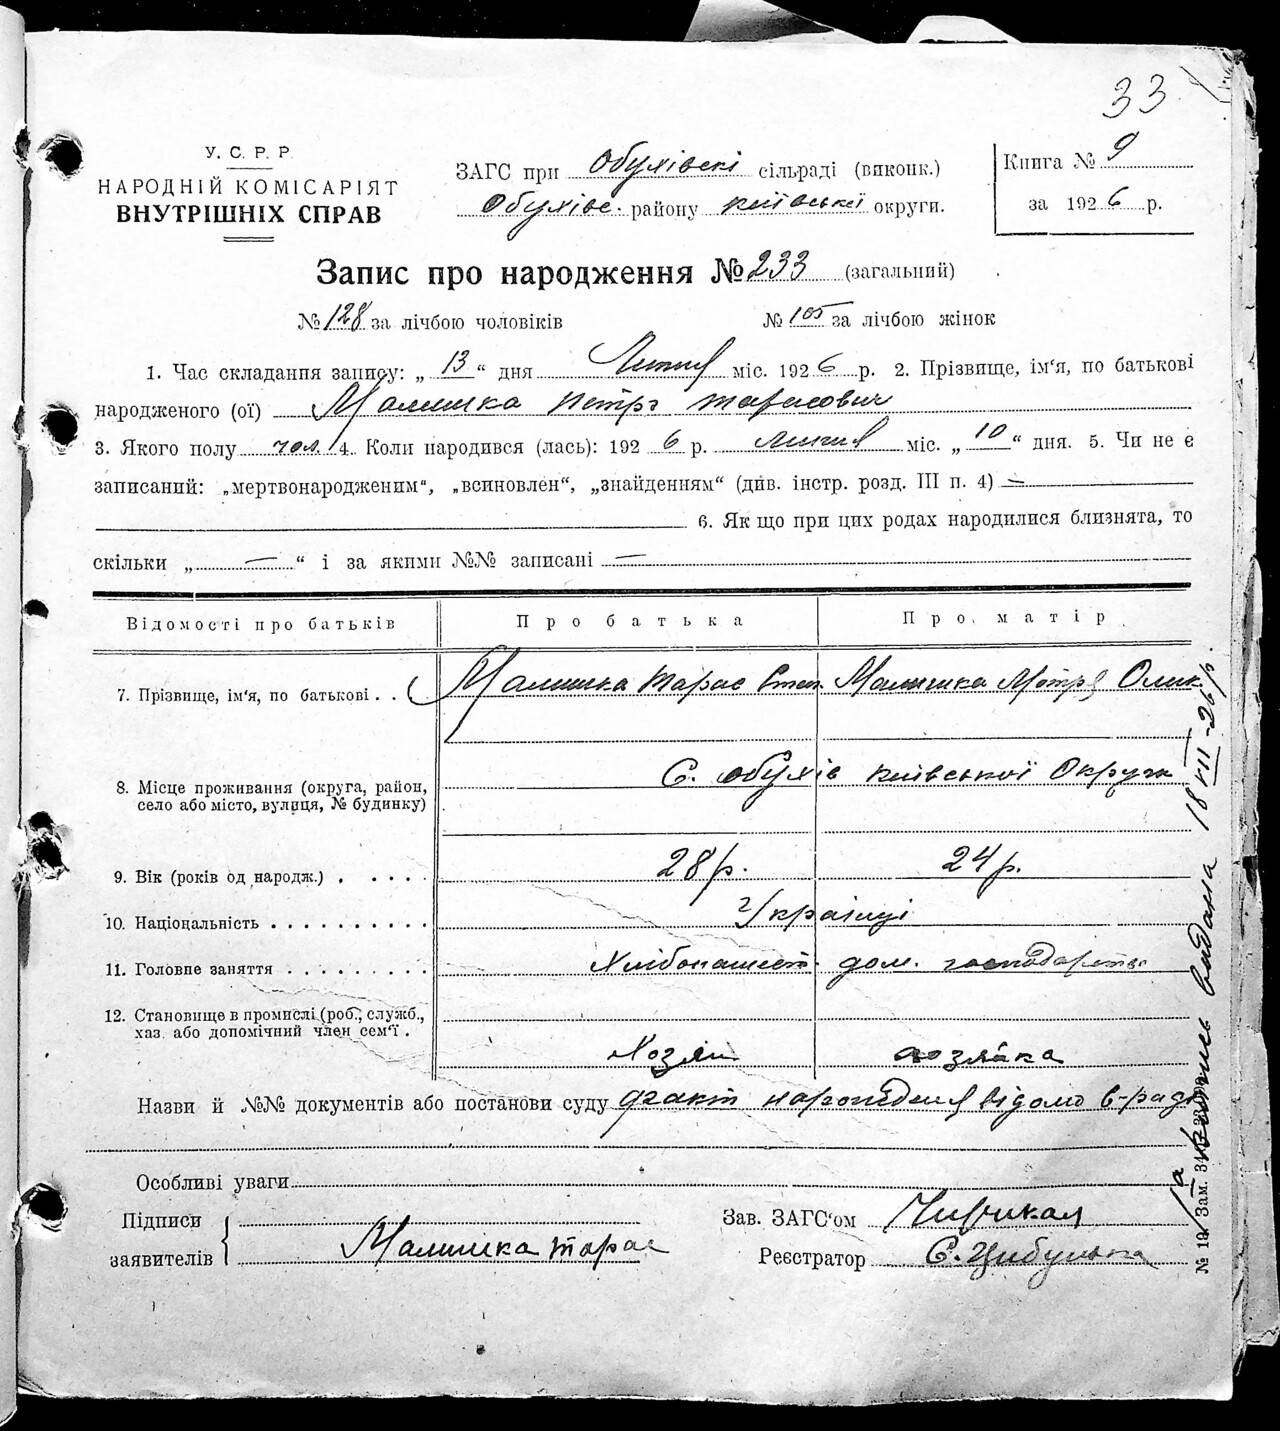 33
У. С. Р. Р.
НАРОДНІЙ КОМІСАРІЯТ
ВНУТРІШНІХ СПРАВ
ЗАГС при Обухівскі сільраді (виконк.)
Обухівс. району київської округи.
Книга № 9
за 1926 р.
Запис про народження № 233 (загальний)
№ 128 за лічбою чоловіків № 105 за лічбою жінок
1. Час складання запису: „ 13 “ дня Липня міс. 1926 р. 2. Прізвище, ім‘я, по батькові
народженого (ої) Малишка Петро Тарасович
3. Якого полу чол. 4. Коли народився (лась): 1926 р. липня міс. „ 10 “ дня. 5. Чи не є
записаний: „мертвонародженим“, „всиновлен“, „знайденням“ (див. інстр. розд. III п. 4) —
6. Як що при цих родах народилися близнята, то
скільки „ — “ і за якими №№ записані —
Відомості про батьків Про батька Про матір
7. Прізвище, ім‘я, по батькові . . Малишка Тарас Степ. Малишка Мотря Олик
8. Місце проживання (округа, район,
село або місто, вулиця, № будинку) С. Обухів київської Округи
9. Вік (років од народж.) . . . . . 28 р. 24 р.
10. Національність . . . . . . . . . . Українці
11. Головне заняття . . . . . . . . . Хлібопашест. дом. господарство
12. Становище в промислі (роб., служб.,
хаз. або допомічний член сем‘ї . Хозяїн хозяйка
Назви й №№ документів або постанови суду факт народження відомо с-раді
Особливі уваги
Підписи
заявителів Малишка Тарас
Зав. ЗАГС‘ом
Реєстратор С. Цибулька
видана 18 VII-26 р.